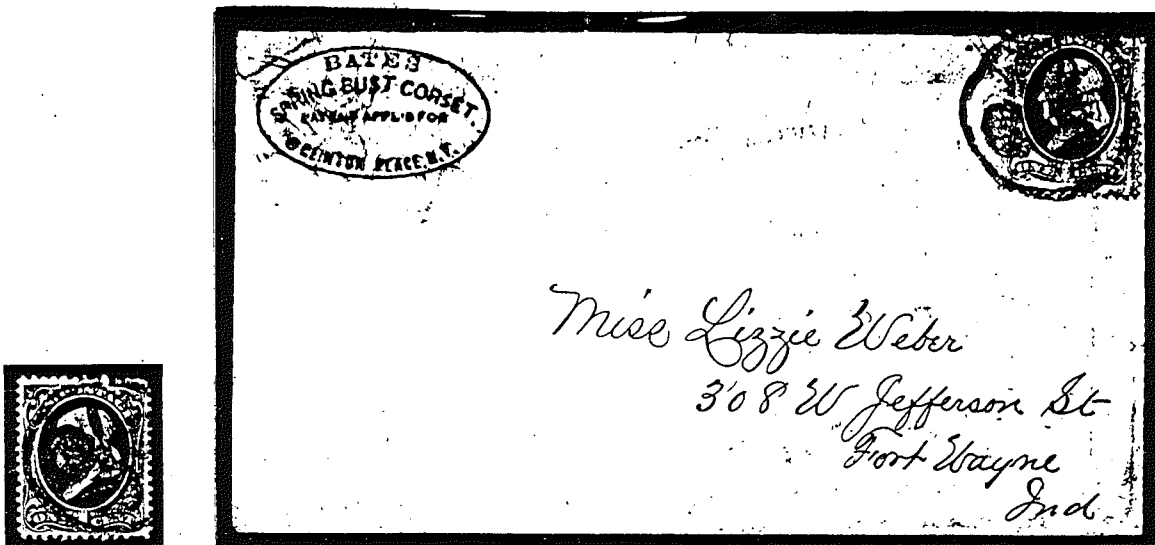 BATES
SPRING BUST CORSET.
PATENT APPL'D FOR
CLINTON PLACE, N.Y.
Miss Lizzie Weber
308 W Jefferson St
Fort Wayne
Ind